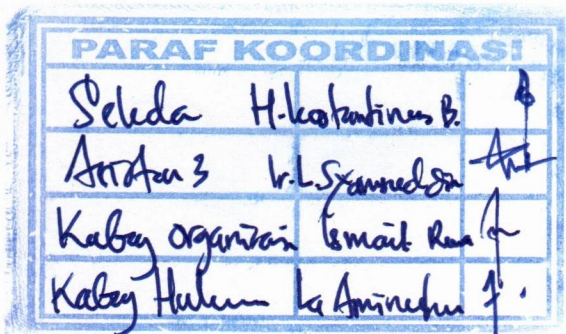 PARAF KOORDINASI
Sekda H. Kostantinus B.
Asisten 3 Ir. L. Syamsuddin
Kabag organisasi Ismail
Kabag Hukum La